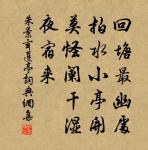 回塘最幽處
拍水小亭開
莫怪闌干濕
夜宿来
朱景玄蓮亭詞典網